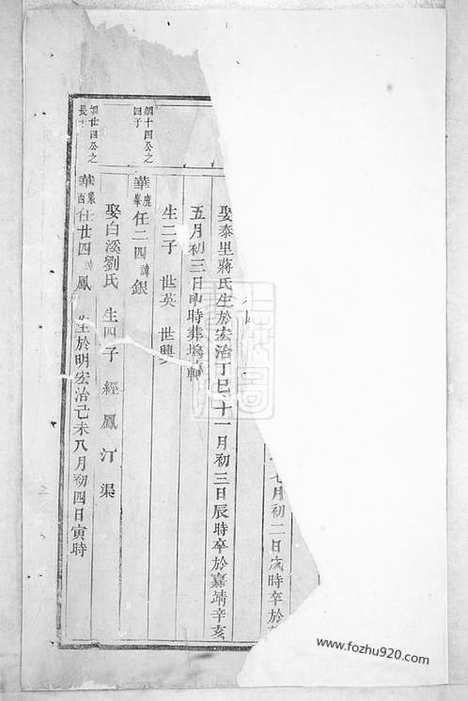 七月初二日歲時卒於
娶泰里蔣氏生於宏治丁巳十一月初三日辰時卒於嘉靖辛亥
五月初三日申時葬塢
生二子 世英 世興
綱十四公之四子
華 任二四諱銀
娶白溪劉氏 生四子 經 鳳 汀 渠
綱廿四公之長
華 任廿四諱鳳 生於明宏治己未八月初四日寅時
www.fozhu920.com